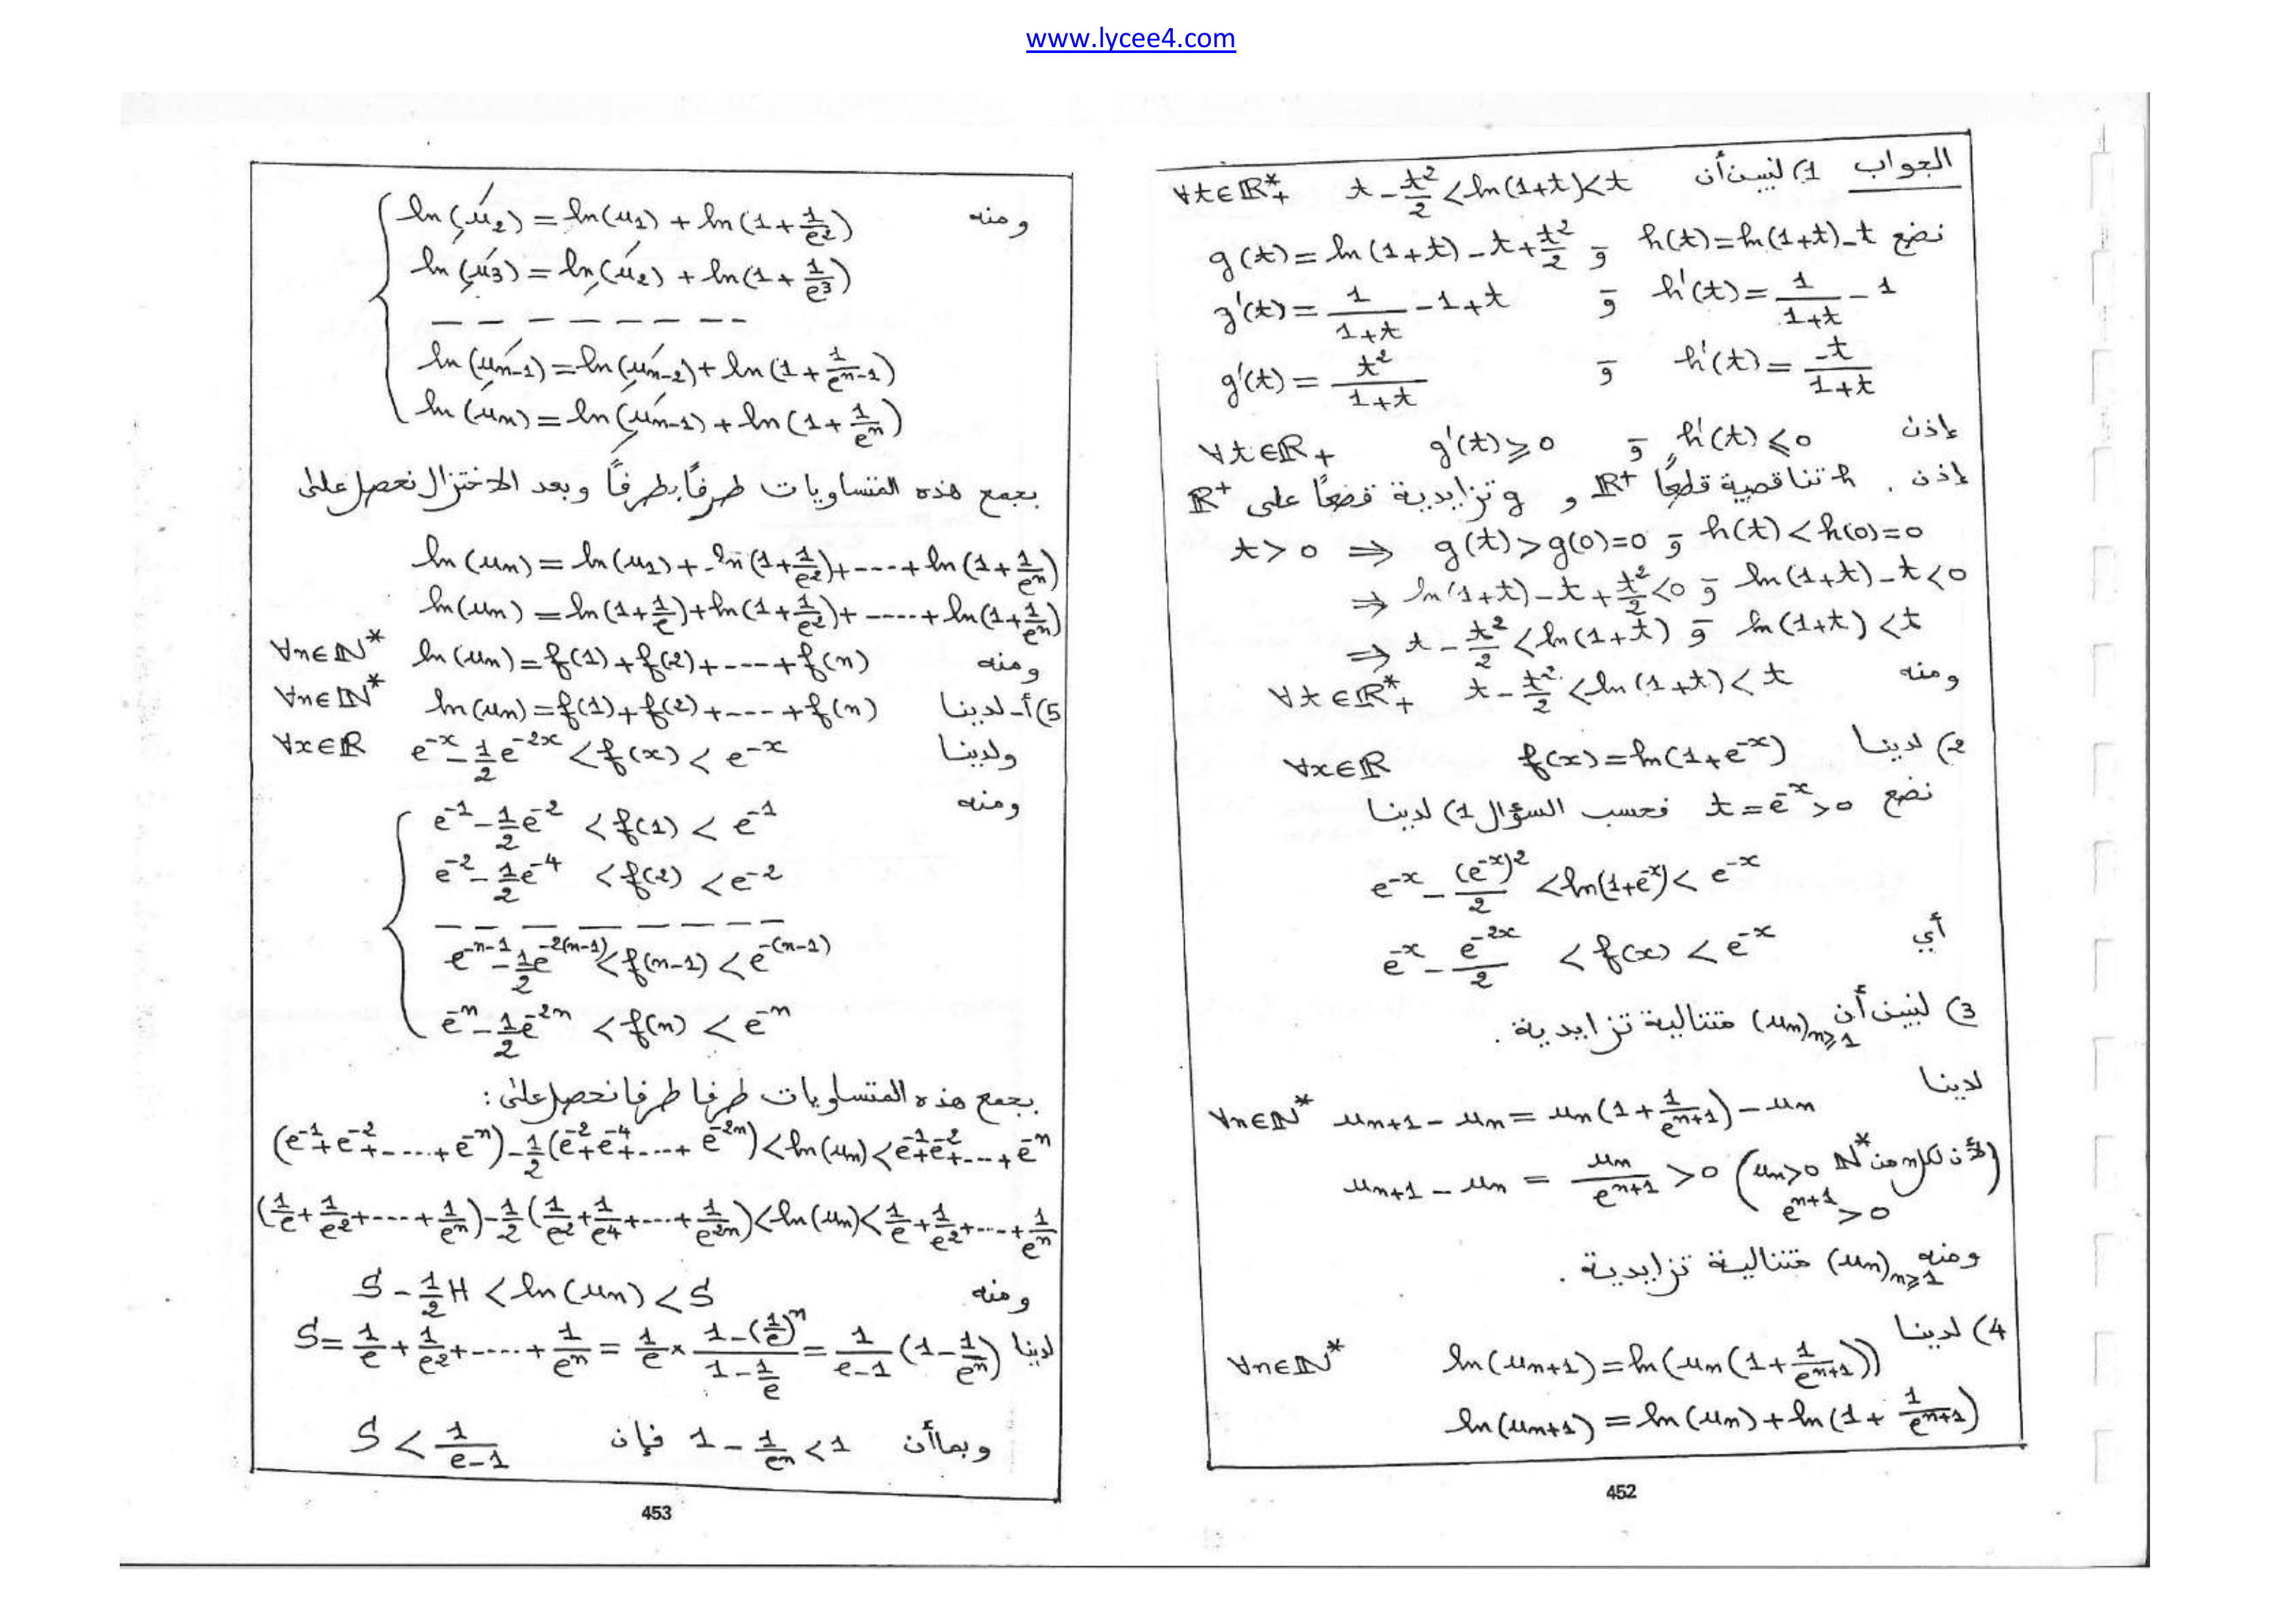 www.lycee4.com
الجواب 1) لنبين أن t - t²/2 < ln(1+t) < t ∀t∈ℝ*₊
نضع h(t)=ln(1+t)-t و g(t)=ln(1+t)-t+t²/2
h'(t)=1/(1+t) - 1 و g'(t)=1/(1+t) -1+t
h'(t)=-t/(1+t) و g'(t)=t²/(1+t)
إذن h'(t)⩽0 و g'(t)⩾0 ∀t∈ℝ₊
إذن . h تناقصية قطعًا ℝ⁺ و g تزايدية قطعًا على ℝ⁺
t>0 ⇒ g(t)>g(0)=0 و h(t)<h(0)=0
⇒ ln(1+t)-t+t²/2<0 و ln(1+t)-t<0
⇒ t-t²/2<ln(1+t) و ln(1+t)<t
ومنه t-t²/2<ln(1+t)<t ∀t∈ℝ*₊
2) لدينا f(x)=ln(1+e^-x) ∀x∈ℝ
نضع t=e^-x>0 فحسب السؤال 1) لدينا
e^-x - (e^-x)²/2 < ln(1+e^-x) < e^-x
أي e^-x - e^-2x/2 < f(x) < e^-x
3) لنبين أن (un)n⩾1 متتالية تزايدية .
لدينا
un+1 - un = un(1+1/e^n+1) - un ∀n∈ℕ*
un+1 - un = un/e^n+1 >0 (لأن لكل n من ℕ* un>0
e^n+1>0)
ومنه (un)n⩾1 متتالية تزايدية .
4) لدينا ln(un+1)=ln(un(1+1/e^n+1)) ∀n∈ℕ*
ln(un+1)=ln(un)+ln(1+1/e^n+1)
452
ومنه ln(u2)=ln(u1)+ln(1+1/e²)
ln(u3)=ln(u2)+ln(1+1/e³)
— — — — — — — —
ln(un-1)=ln(un-2)+ln(1+1/e^n-1)
ln(un)=ln(un-1)+ln(1+1/e^n)
بجمع هذه المتساويات طرفًا بطرفًا وبعد الاختزال نحصل على
ln(un)=ln(u1)+ln(1+1/e²)+----+ln(1+1/e^n)
ln(un)=ln(1+1/e)+ln(1+1/e²)+-----+ln(1+1/e^n)
ومنه ln(un)=f(1)+f(2)+----+f(n) ∀n∈ℕ*
5) أ- لدينا ln(un)=f(1)+f(2)+----+f(n) ∀n∈ℕ*
ولدينا e^-x - 1/2 e^-2x < f(x) < e^-x ∀x∈ℝ
ومنه
e^-1 - 1/2 e^-2 < f(1) < e^-1
e^-2 - 1/2 e^-4 < f(2) < e^-2
— — — — — — — —
e^-n-1 - 1/2 e^-2(n-1) < f(n-1) < e^-(n-1)
e^-n - 1/2 e^-2n < f(n) < e^-n
بجمع هذه المتساويات طرفا طرفا نحصل على :
(e^-1+e^-2+----+e^-n)-1/2(e^-2+e^-4+----+e^-2n)<ln(un)<e^-1+e^-2+----+e^-n
(1/e+1/e²+----+1/e^n)-1/2(1/e²+1/e⁴+----+1/e^2n)<ln(un)<1/e+1/e²+----+1/e^n
ومنه S - 1/2 H < ln(un) < S
لدينا S=1/e+1/e²+-----+1/e^n = 1/e × (1-(1/e)^n)/(1-1/e) = 1/(e-1) (1-1/e^n)
وبما أن 1-1/e^n<1 فإن S < 1/(e-1)
453